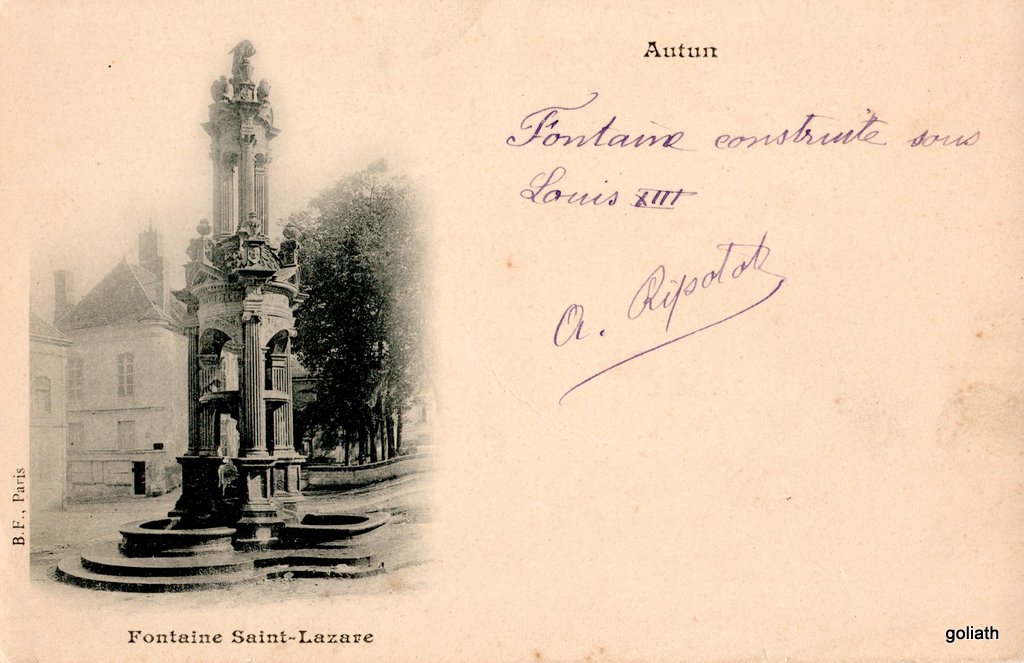 Autun
Fontaine construite sous
Louis XIII
A. Ripotot
B.F., Paris
Fontaine Saint-Lazare
goliath